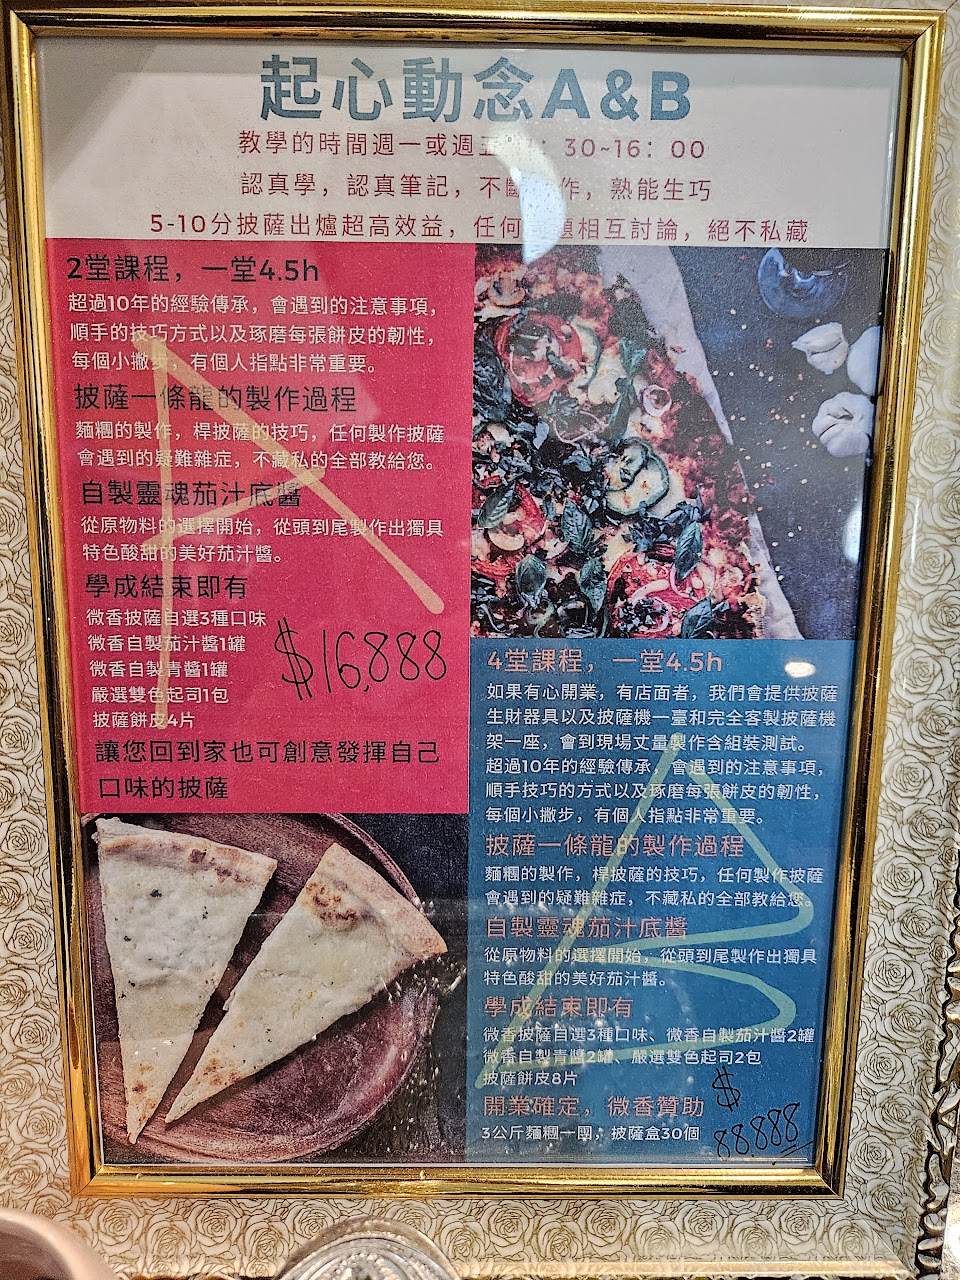 起心動念A&B
教學的時間週一或週五 : 30~16: 00
認真學，認真筆記，不斷 作，熟能生巧
5-10分披薩出爐超高效益，任何 題相互討論，絕不私藏
2堂課程，一堂4.5h
超過10年的經驗傳承，會遇到的注意事項，
順手的技巧方式以及琢磨每張餅皮的韌性，
每個小撇步，有個人指點非常重要。
披薩一條龍的製作過程
麵糰的製作，桿披薩的技巧，任何製作披薩
會遇到的疑難雜症，不藏私的全部教給您。
自製靈魂茄汁底醬
從原物料的選擇開始，從頭到尾製作出獨具
特色酸甜的美好茄汁醬。
學成結束即有
微香披薩自選3種口味
微香自製茄汁醬1罐
微香自製青醬1罐
嚴選雙色起司1包
披薩餅皮4片
$16,888
讓您回到家也可創意發揮自己
口味的披薩
A
4堂課程，一堂4.5h
如果有心開業，有店面者，我們會提供披薩
生財器具以及披薩機一臺和完全客製披薩機
架一座，會到現場丈量製作含組裝測試。
超過10年的經驗傳承，會遇到的注意事項，
順手技巧的方式以及琢磨每張餅皮的韌性，
每個小撇步，有個人指點非常重要。
披薩一條龍的製作過程
麵糰的製作，桿披薩的技巧，任何製作披薩
會遇到的疑難雜症，不藏私的全部教給您。
自製靈魂茄汁底醬
從原物料的選擇開始，從頭到尾製作出獨具
特色酸甜的美好茄汁醬。
學成結束即有
微香披薩自選3種口味、微香自製茄汁醬2罐
微香自製青醬2罐、嚴選雙色起司2包
披薩餅皮8片
開業確定，微香贊助
3公斤麵糰一團，披薩盒30個
$
88888
B